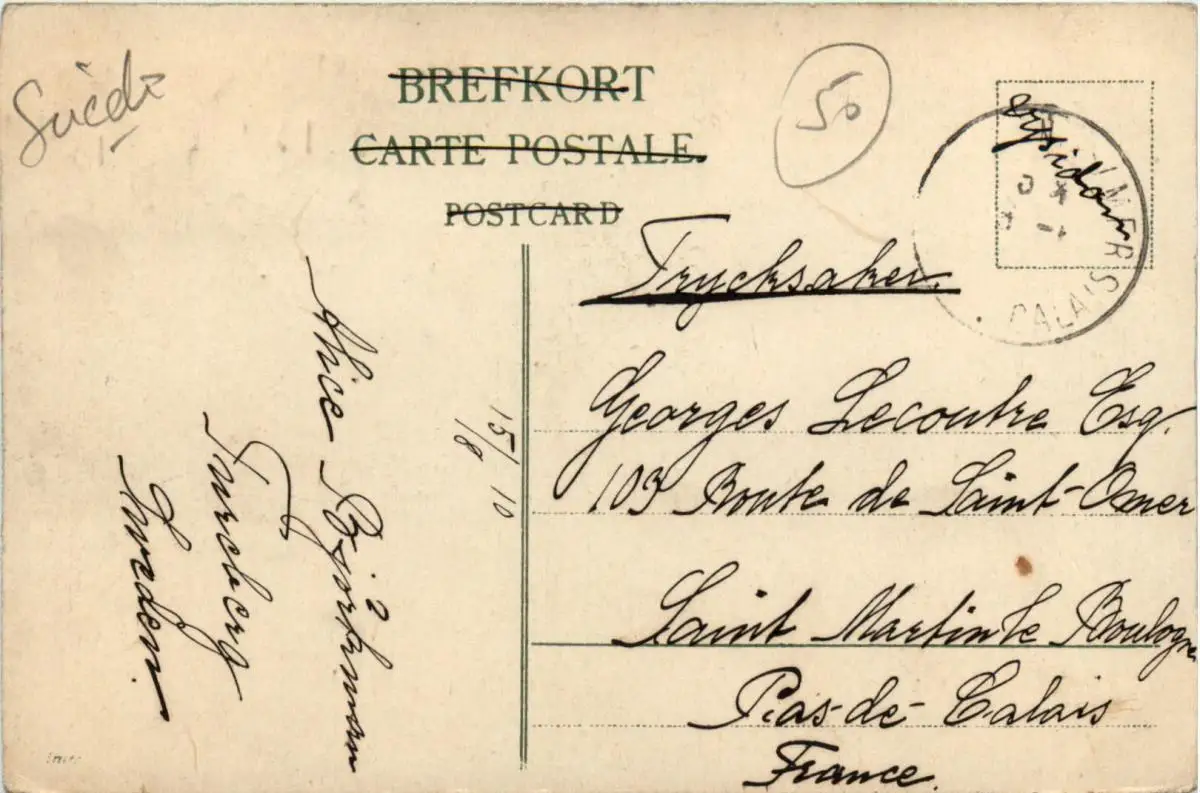 Suède
BREFKORT
CARTE POSTALE
POSTCARD
50
CALAIS
Trycksaker.
Georges Lecoutre Esq.
103 Route de Saint-Omer
Saint Martin le Boulogne
Pas-de-Calais
France.
15/10
/8
Alice Björkman
Sweden.